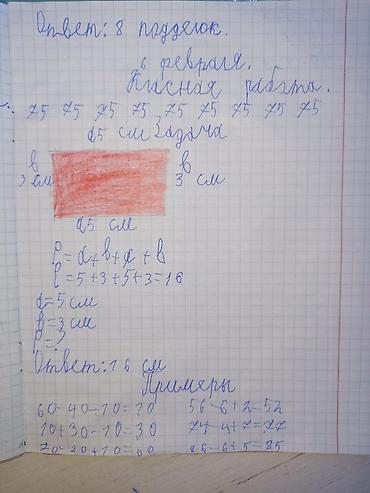 Ответ: 8 подделок.
6 февраля.
Класная работа.
75 75 75 75 75 75 75 75 75
a5 см Задача
в в
3 см 3 см
a5 см
P = a + в + a + в
P = 5 + 3 + 5 + 3 = 16
a = 5 см
в = 3 см
P = ?
Ответ: 16 см
Примеры
60 - 40 - 10 = 10 56 - 6 + 2 = 52
10 + 30 - 10 = 30 74 - 4 + 7 = 77
70 - 20 + 10 = 60 86 - 6 + 5 = 85